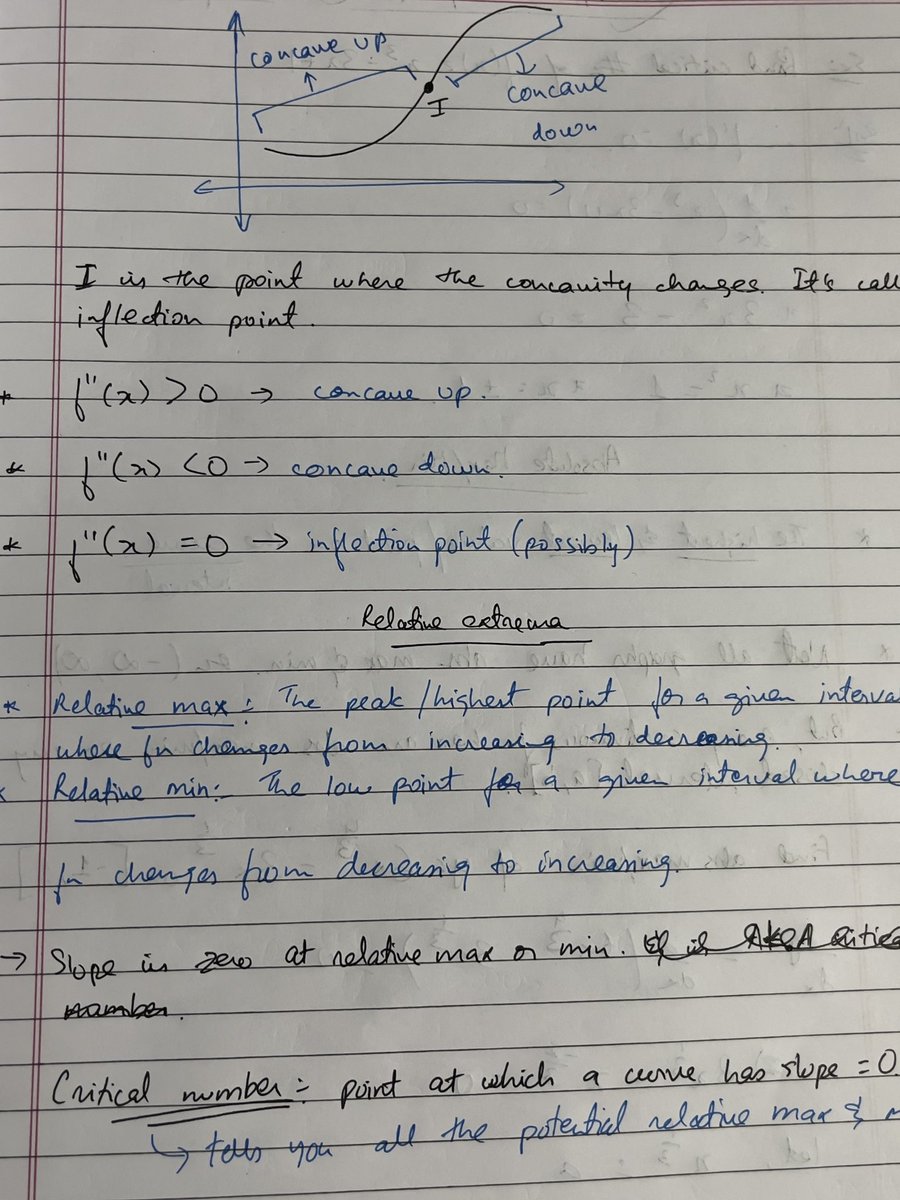 concave up
concave
down
I
I is the point where the concavity changes. It's call
inflection point.
* f"(x) > 0 → concave up.
* f"(x) < 0 → concave down.
* f"(x) = 0 → inflection point (possibly)
Relative extrema
* Relative max: The peak/highest point for a given interva
where fn changes from increasing to decreasing.
Relative min:- The low point for a given interval where
fn changes from decreasing to increasing.
→ Slope is zero at relative max or min.
number.
Critical number: point at which a curve has slope = 0.
↳ tells you all the potential relative max &